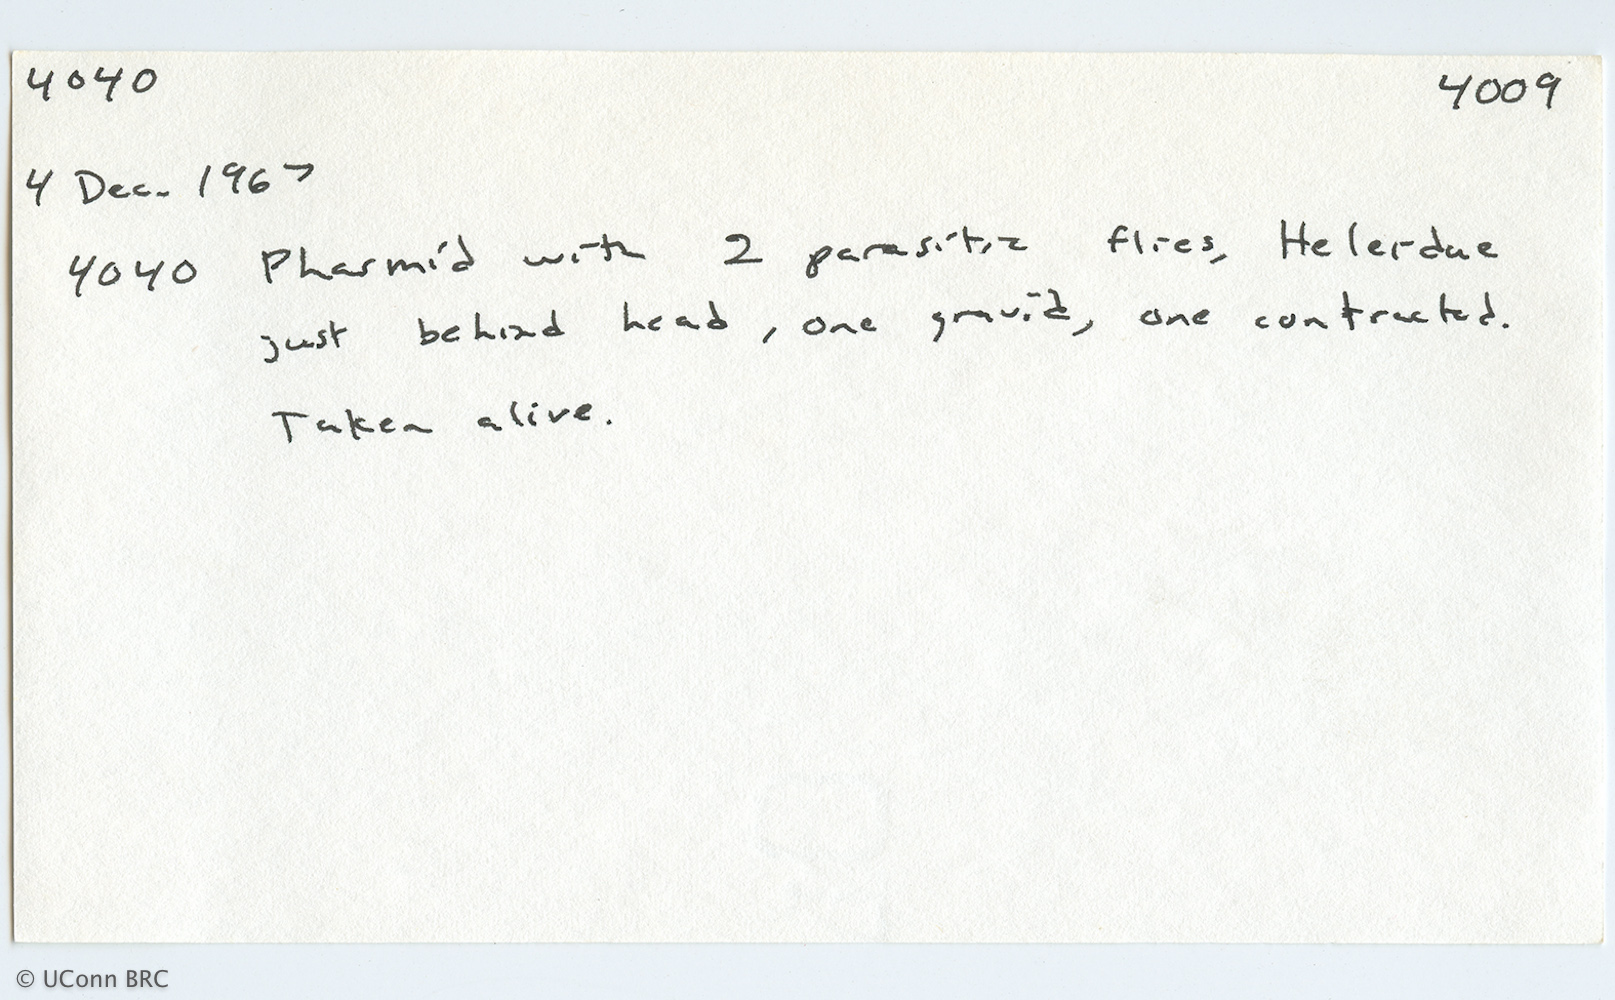 4040 4009
4 Dec. 1967
4040 Phasmid with 2 parasitic flies, Heleidae
just behind head, one gravid, one contracted.
Taken alive.
© UConn BRC